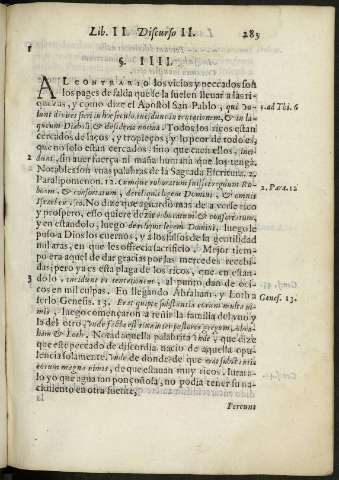 Lib. II. Discurso II. 283
§. IIII.
AL CONTRARIO los vicios y peccados son
los pages de falda que se la suelen lleuar a las ri-
quezas, y como dize el Apostol San Pablo, qui vo-
lunt diuites fieri in hoc seculo incidunt in tentationem, & in la-
queum Diaboli & desideria nociua. Todos los ricos estan
cercados de laços, y tropieços, y lo peor de todo es
que no solo estan cercados: sino que caen ellos, inci-
dunt, sin auer fuerça ni maña humana que los tenga.
Notables son vnas palabras de la Sagrada Escritura. 2.
Paralipomenon. 12. Cumque roboratum fuisset regnum Ro-
boam, & confortatum, dereliquit legem Domini, & omnis
Israel cum eo. No dize que aguardo mas de a verse rico
y prospero, esso quiere dezir roboratum & confortatum,
y en estandolo, luego dereliquit legem Domini, luego le
puso a Dios los cuernos, y a los falsos de la gentilidad
mil aras, en que les offrecia sacrificio. Mejor tiem-
po era aquel de dar gracias por las mercedes recebi-
das; pero ya es esta plaga de los ricos, que en estan-
dolo, incidunt in tentationem, al punto dan de oci-
cos en mil culpas. En llegando Abraham, y Loth a
serlo Genesis. 13. Erat quippe substantia eorum multa ni-
mis, luego començaron a reñir la familia del vno y
la del otro, Vnde facta est rixa inter pastores gregum, Abra-
ham & Loth. Notad aquella palabrita vnde, que dize
que este peccado de discordia nacio de aquella opu-
lencia solamente. Vnde de donde de que erat substantia
eorum magna nimis, de que estauan muy ricos. Iurara-
lo yo que agua tan ponçoñosa, no podia tener su na-
cimiento en otra fuente.
Pecunia
1
2
3
1. ad Thi. 6
2. Para. 12
Genes. 13.